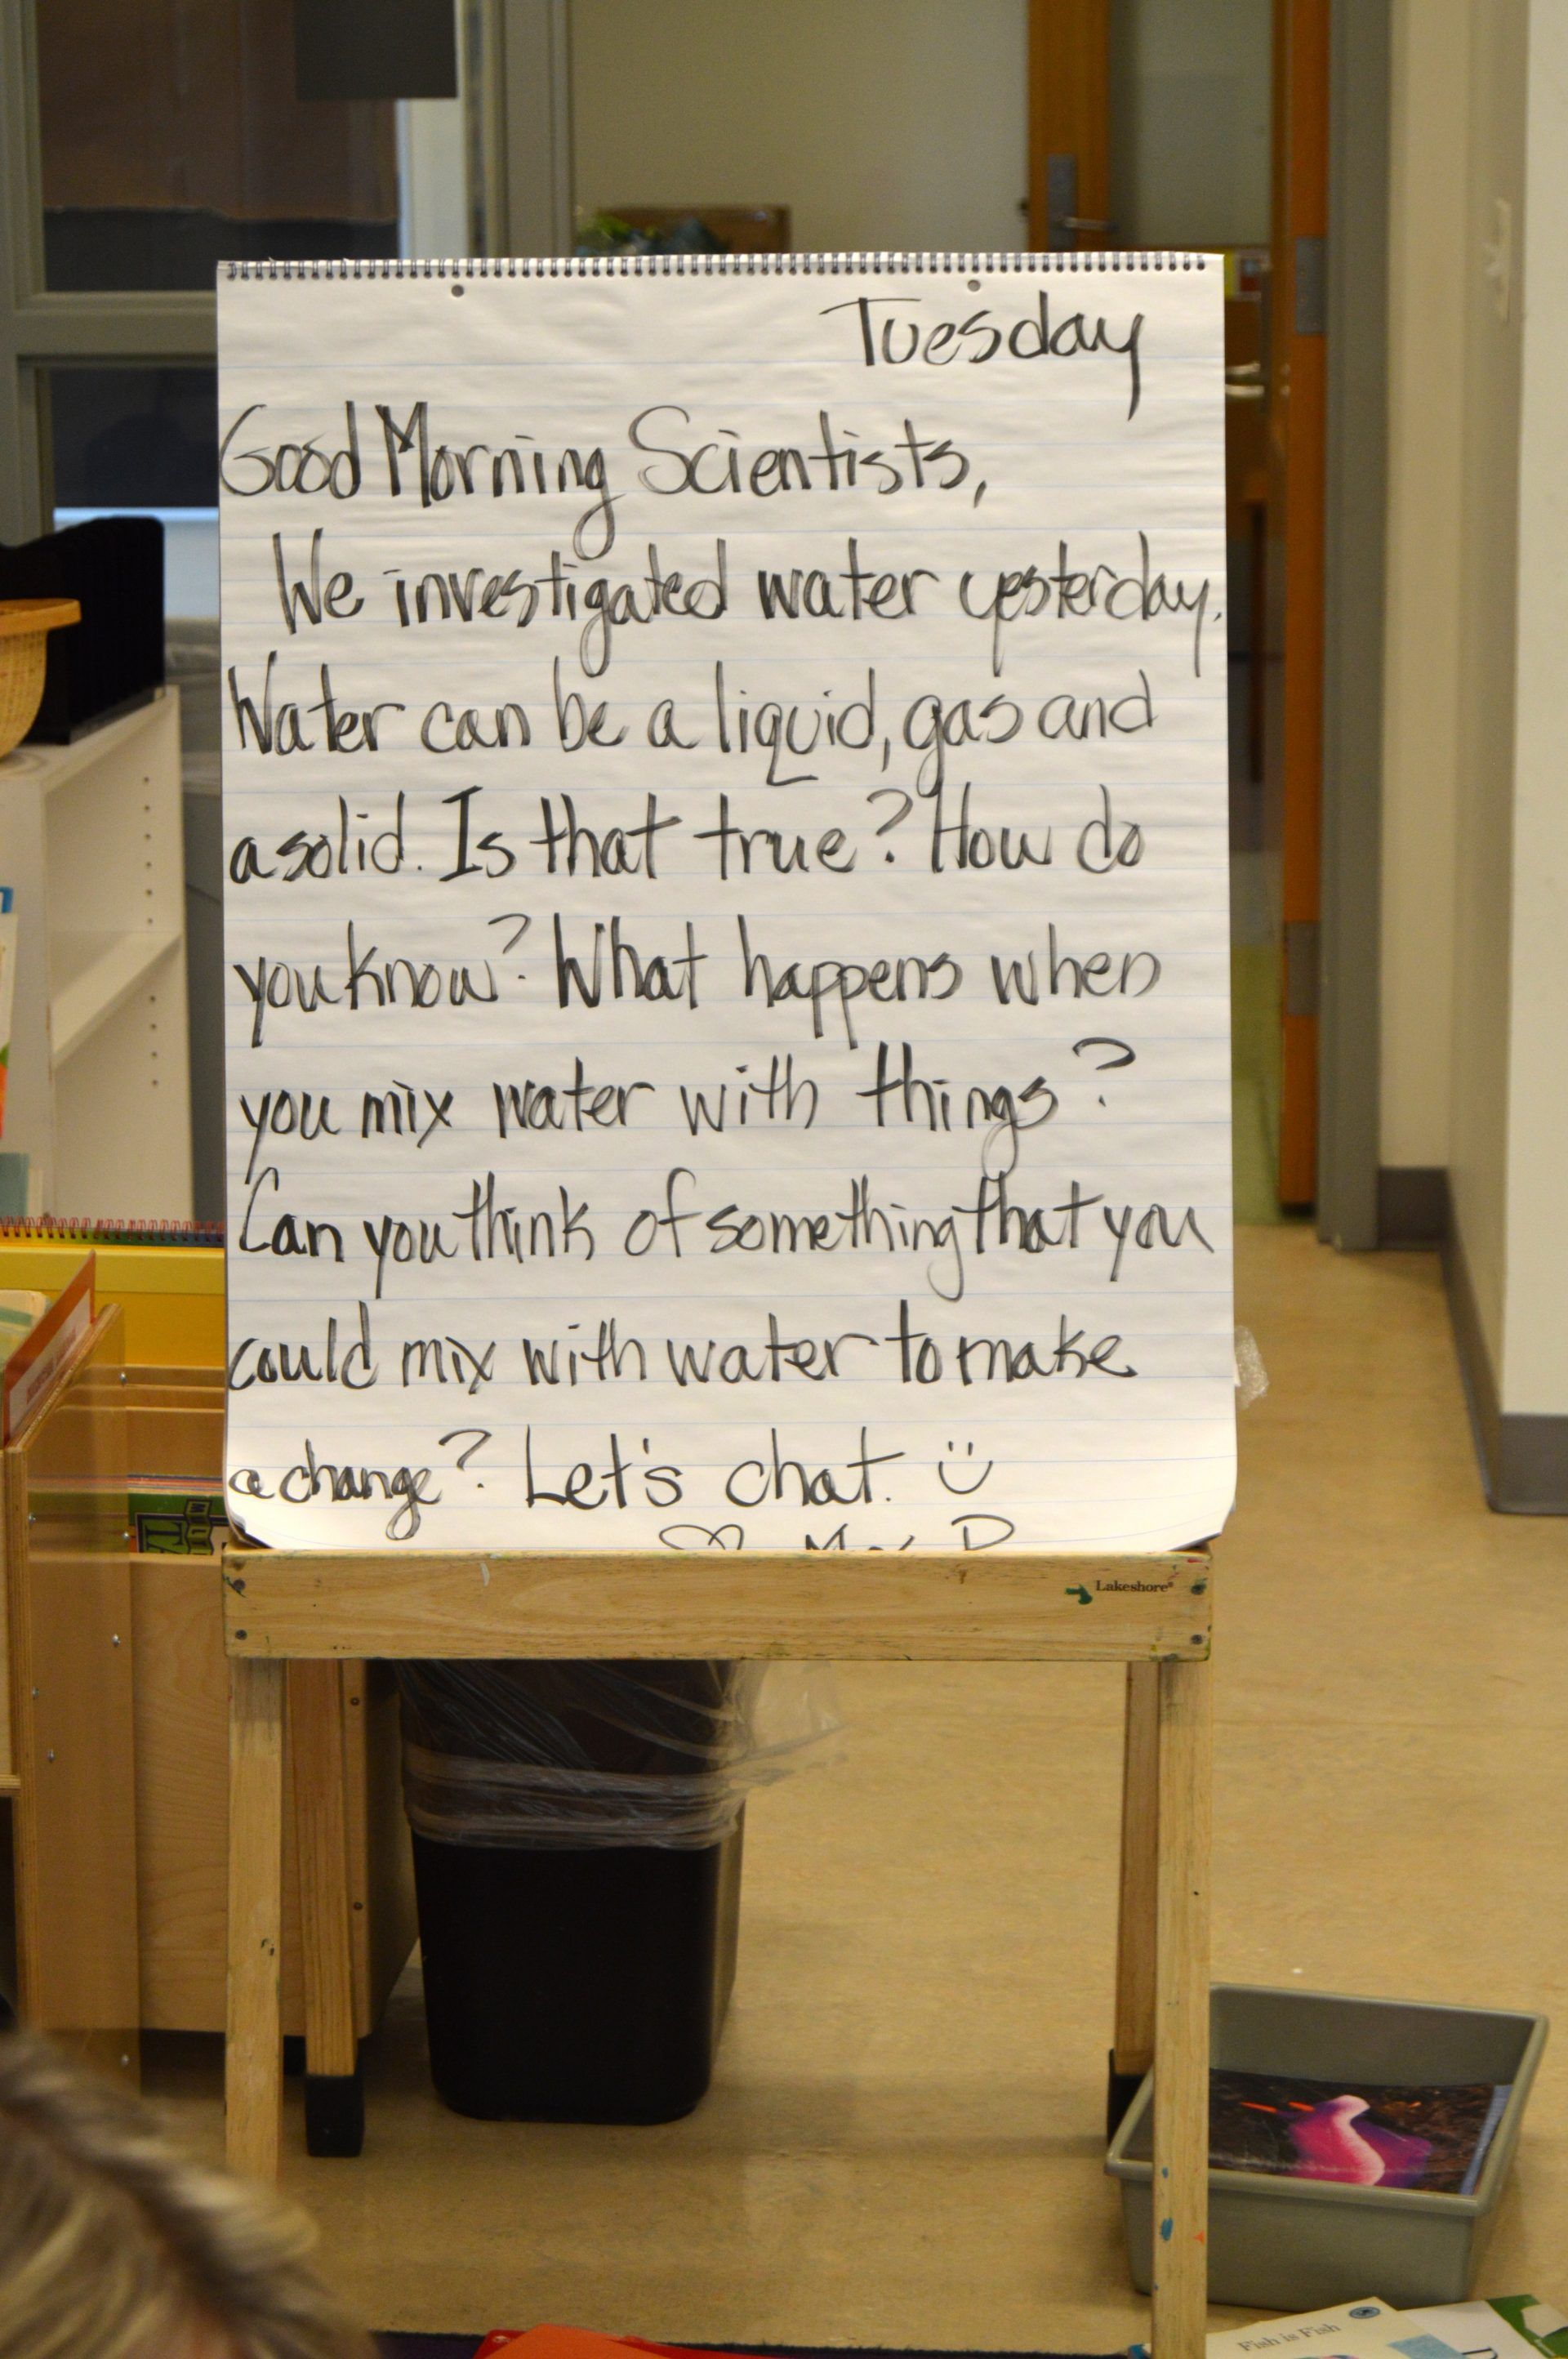 Tuesday
Good Morning Scientists,
We investigated water yesterday.
Water can be a liquid, gas and
a solid. Is that true? How do
you know? What happens when
you mix water with things?
Can you think of something that you
could mix with water to make
a change? Let's chat. :)
Lakeshore®
Fish is Fish